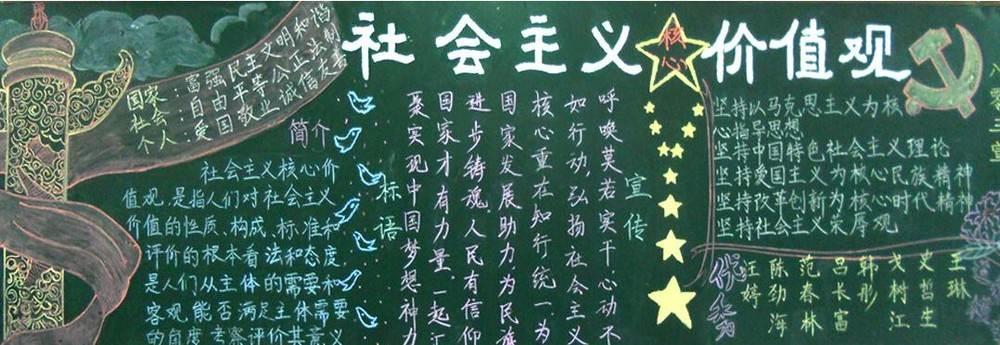 社会主义核心价值观
国家：富强民主文明和谐
社会：自由平等公正法制
个人：爱国敬业诚信友善
简介
社会主义核心价
值观,是指人们对社会主义
价值的性质、构成、标准和
评价的根本看法和态度,
是人们从主体的需要和
客观,能否满足主体需要
的角度,考察评价其意义
宣传
标语
呼唤莫若实干心动不
如行动,弘扬社会主义
核心重在知行统一.为
国家发展助力为民族
进步铸魂.人民有信仰
国家才有力量.一起汇
聚实现中国梦想神力
坚持以马克思主义为核
心指导思想
坚持中国特色社会主义理论
坚持爱国主义为核心民族精神
坚持改革创新为核心时代精神
坚持社会主义荣辱观
王琳
史哲生
戈树江
韩彤
吕长富
范春林
陈劲海
汪婷